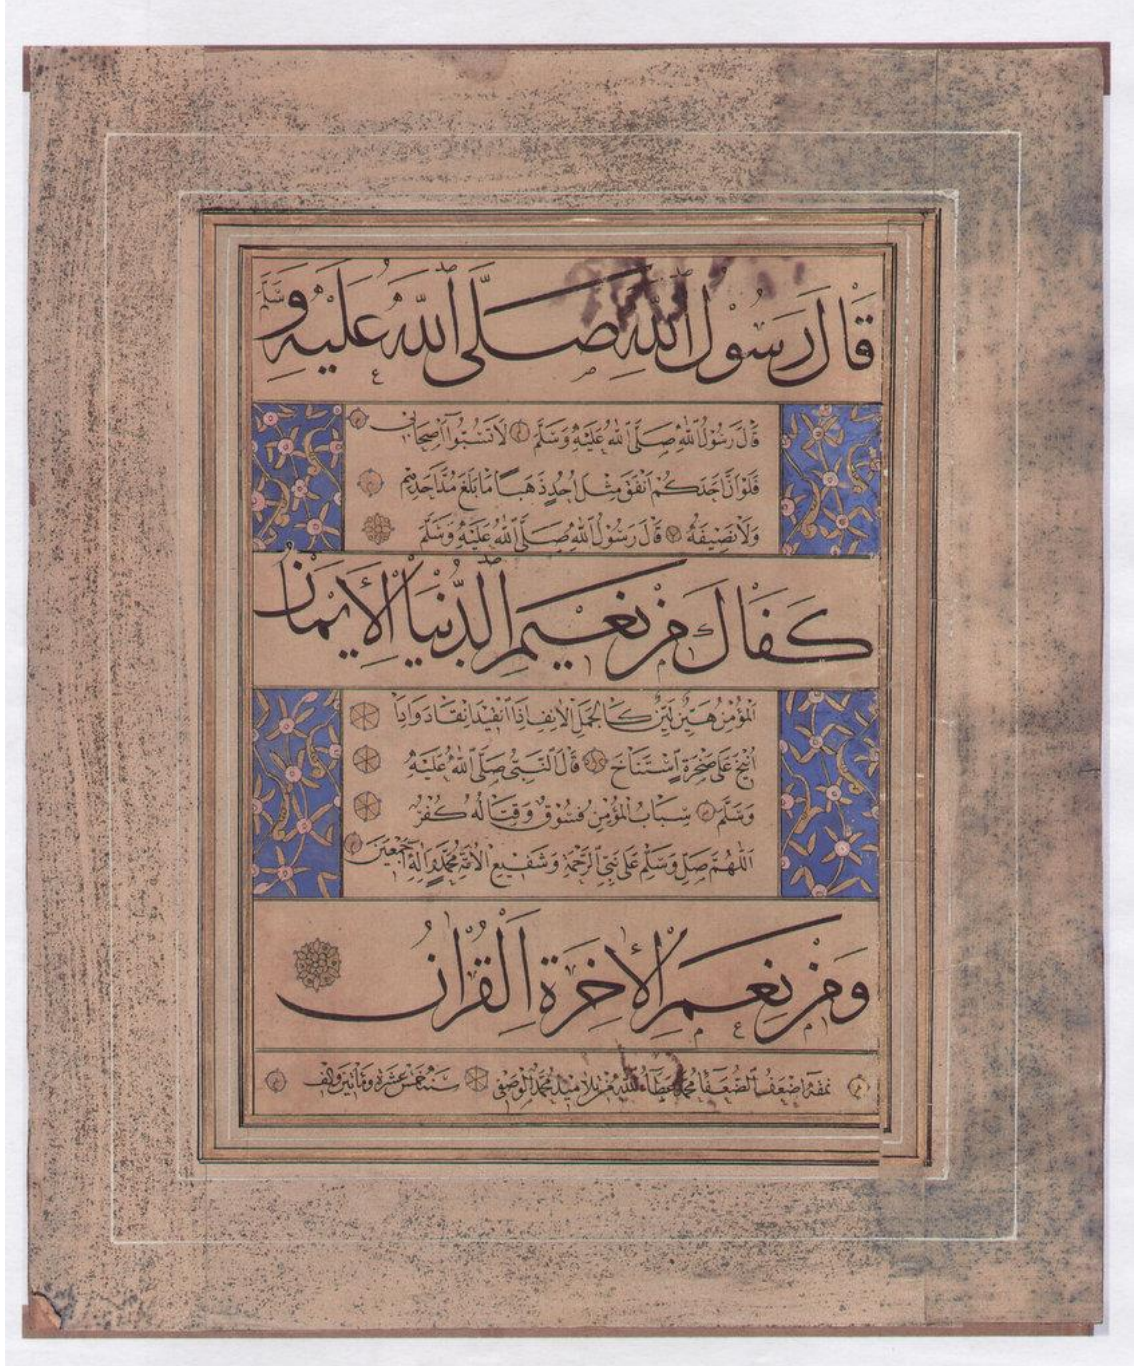 قَالَ رَسُوْلُ اللّٰهِ صَلَّى اللّٰهُ عَلَيْهِ وَسَلَّمَ
قَالَ رَسُوْلُ اللّٰهِ صَلَّى اللّٰهُ عَلَيْهِ وَسَلَّمَ لَا تَسُبُّوا اَصْحَابِى
فَلَوْ اَنَّ اَحَدَكُمْ اَنْفَقَ مِثْلَ اُحُدٍ ذَهَبًا مَا بَلَغَ مُدَّ اَحَدِهِمْ
وَلَا نَصِيْفَهُ قَالَ رَسُوْلُ اللّٰهِ صَلَّى اللّٰهُ عَلَيْهِ وَسَلَّمَ
كَفَاكَ مِنْ نَعِيْمِ الدُّنْيَا الْاِيْمَانُ
اَلْمُؤْمِنُ هَيِّنٌ لَيِّنٌ كَالْجَمَلِ الْاَنِفِ اِذَا انْقِيْدَ انْقَادَ وَاِذَا
اُنِيْخَ عَلٰى صَخْرَةٍ اسْتَنَاخَ قَالَ النَّبِىُّ صَلَّى اللّٰهُ عَلَيْهِ
وَسَلَّمَ سِبَابُ الْمُؤْمِنِ فُسُوْقٌ وَقِتَالُهُ كُفْرٌ
اَللّٰهُمَّ صَلِّ وَسَلِّمْ عَلٰى نَبِىِّ الرَّحْمَةِ وَشَفِيْعِ الْاُمَّةِ مُحَمَّدٍ وَاٰلِهِ اَجْمَعِيْنَ
وَمِنْ نِعَمِ الْاٰخِرَةِ الْقُرْاٰنُ
نمقه اضعف الضعفا محمد عطاء الله من تلاميذ محمد الوصفى سنة خمس عشر ومأتين والف